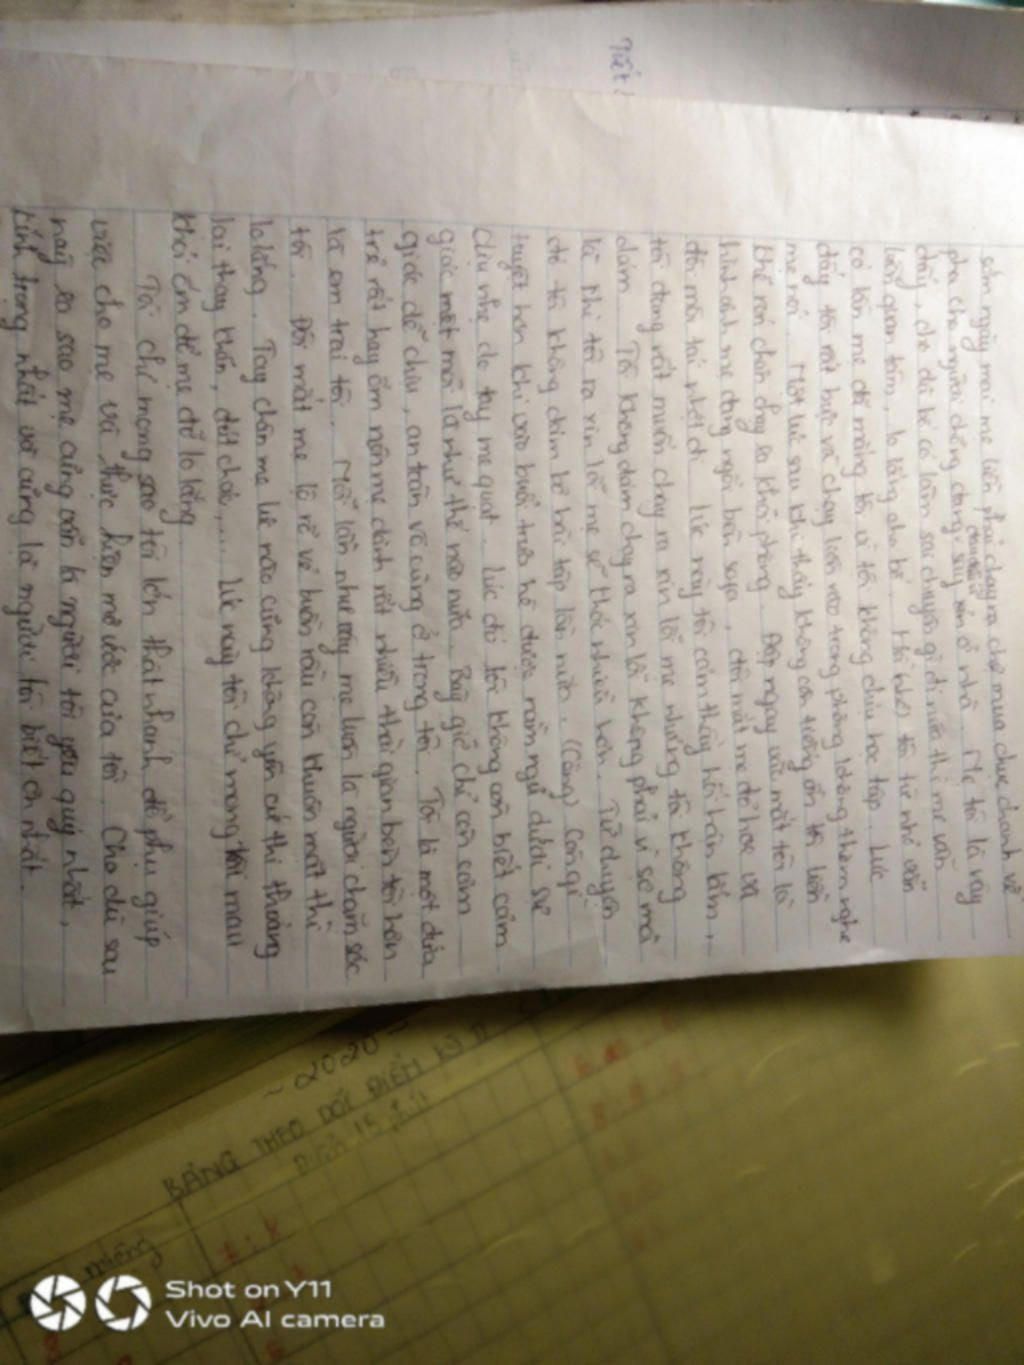 Tiết
sớm ngày mai mẹ liền phải chạy ra chợ mua chục chanh về
pha cho người chồng đang say xỉn ở nhà. Mẹ tôi là vậy
đấy, cho dù kể cả làm sai chuyện gì đi nữa thì mẹ vẫn
luôn quan tâm, lo lắng cho bố. Hồi nhỏ, tôi từ nhỏ vốn
có lần mẹ đã mắng tôi vì tôi không chịu học tập. Lúc
đấy tôi rất bực và chạy luôn vào trong phòng không thèm nghe
mẹ nói. Một lúc sau khi thấy không còn tiếng ồn tôi liền
khẽ rón chân chạy ra khỏi phòng. Đập ngay vào mắt tôi là
hình ảnh mẹ đang ngồi bên sofa, đôi mắt mẹ đỏ hoe và
đôi môi tái nhợt đi. Lúc này tôi cảm thấy hối hận lắm,
tôi đang rất muốn chạy ra xin lỗi mẹ nhưng tôi không
dám. Tôi không dám chạy ra xin lỗi không phải vì sợ mà
là khi tôi ra xin lỗi mẹ sẽ khóc nhiều hơn. Từ chuyện
đó tôi không dám bỏ bài tập lần nữa. (Cũng) Còn gì
tuyệt hơn khi vào buổi trưa hè được nằm ngủ dưới sự
dịu nhẹ do tay mẹ quạt. Lúc đó tôi không còn biết cảm
giác mệt mỏi là như thế nào nữa. Bây giờ chỉ còn cảm
giác dễ chịu, an toàn vô cùng ở trong tôi. Tôi là một đứa
trẻ rất hay ốm nên mẹ dành rất nhiều thời gian bên tôi hơn
là em trai tôi. Mỗi lần như vậy mẹ luôn là người chăm sóc
tôi. Đôi mắt mẹ lộ rõ vẻ buồn rầu còn khuôn mặt thì
lo lắng. Tay chân mẹ lúc nào cũng không yên cứ thi thoảng
lại thay khăn, đút cháo,... Lúc này tôi chỉ mong tôi mau
khỏi ốm để mẹ đỡ lo lắng
Tôi chỉ mong sao tôi lớn thật nhanh để phụ giúp
vừa cho mẹ và thực hiện mơ ước của tôi. Cho dù sau
này ra sao mẹ cũng vẫn là người tôi yêu quý nhất,
kính trọng nhất và cũng là người tôi biết ơn nhất.
~ 2020 ~
BẢNG THEO DÕI ĐIỂM KỲ II
Điểm 15 phút
miệng
Shot on Y11
Vivo AI camera